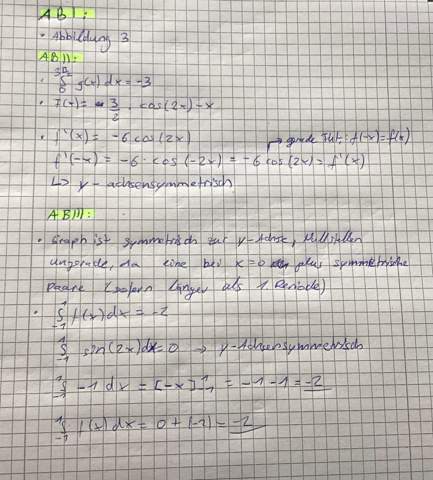 AB I:
• Abbildung 3
AB II:
• ∫ g(x) dx = -3
• F(x) = - 3/2 · cos(2x) - x
• f'(x) = -6 cos(2x) → grade Fkt: f(-x) = f(x)
f'(-x) = -6 · cos(-2x) = -6 cos(2x) = f'(x)
↳ y-achsensymmetrisch
AB III:
• Graph ist symmetrisch zur y-Achse, Nullstellen
ungerade, da eine bei x=0 plus symmetrische
Paare (sofern länger als 1. Periode)
• ∫₋₁¹ f(x) dx = -2
∫₋₁¹ sin(2x) dx = 0 → y-Achsensymmetrisch
∫₋₁¹ -1 dx = [-x]¹₋₁ = -1 -1 = -2
∫₋₁¹ f(x) dx = 0 + (-2) = -2